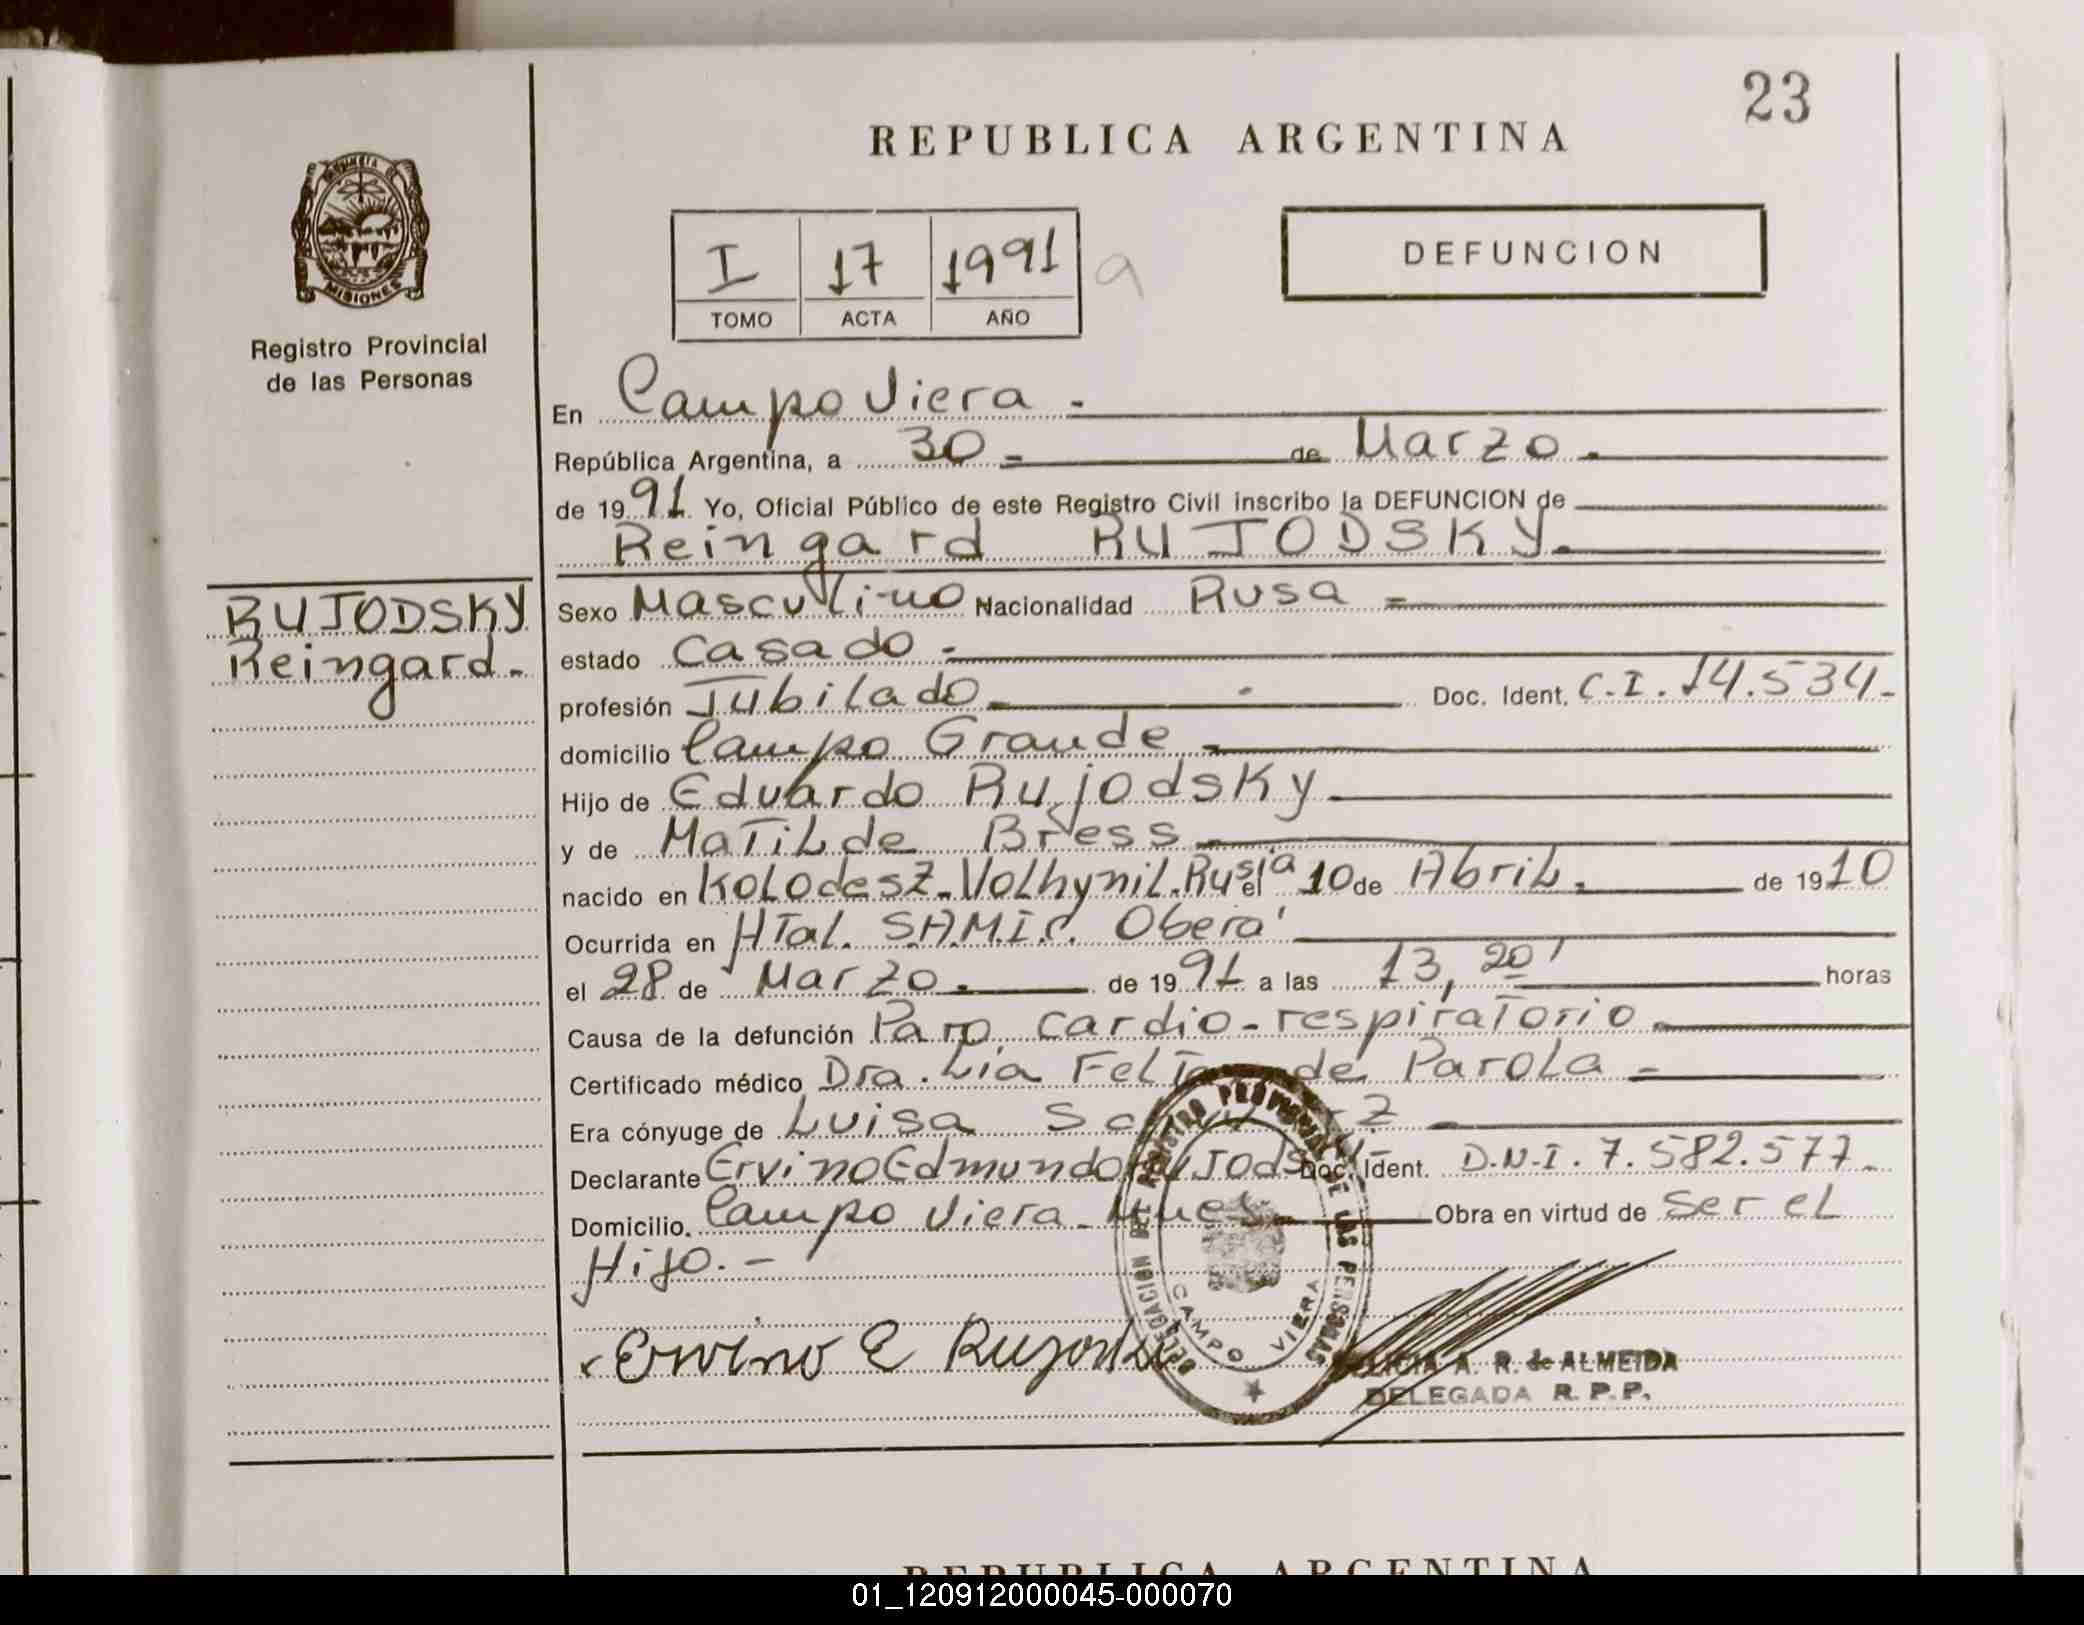 23
REPUBLICA ARGENTINA
MISIONES
Registro Provincial
de las Personas
I 17 1991
TOMO ACTA AÑO
DEFUNCION
En Campo Viera -
República Argentina, a 30 - de Marzo -
de 1991 Yo, Oficial Público de este Registro Civil inscribo la DEFUNCION de
Reingard RUJODSKY.
RUJODSKY
Reingard.-
Sexo Masculino Nacionalidad Rusa -
estado Casado -
profesión Jubilado - Doc. Ident. C.I. 14.534-
domicilio Campo Grande -
Hijo de Eduardo Rujodsky
y de Matilde Bress -
nacido en Kolodesz-Volhynil-Rusia el 10 de Abril - de 1910
Ocurrida en HTal. S.A.M.I.C. Oberá
el 28 de Marzo - de 1991 a las 13,20' horas
Causa de la defunción Paro cardio-respiratorio -
Certificado médico Dra. Lia de Parola -
Era cónyuge de Luisa
Declarante Ervino Edmundo Doc. Ident. D.N.I. 7.582.577-
Domicilio. Campo Viera - Obra en virtud de ser el
Hijo.-
Ervino E
DELEGACION DEL REGISTRO PROVINCIAL DE LAS PERSONAS
CAMPO VIERA
A. R. de ALMEIDA
DELEGADA R. P. P.
REPUBLICA ARGENTINA
01_120912000045-000070